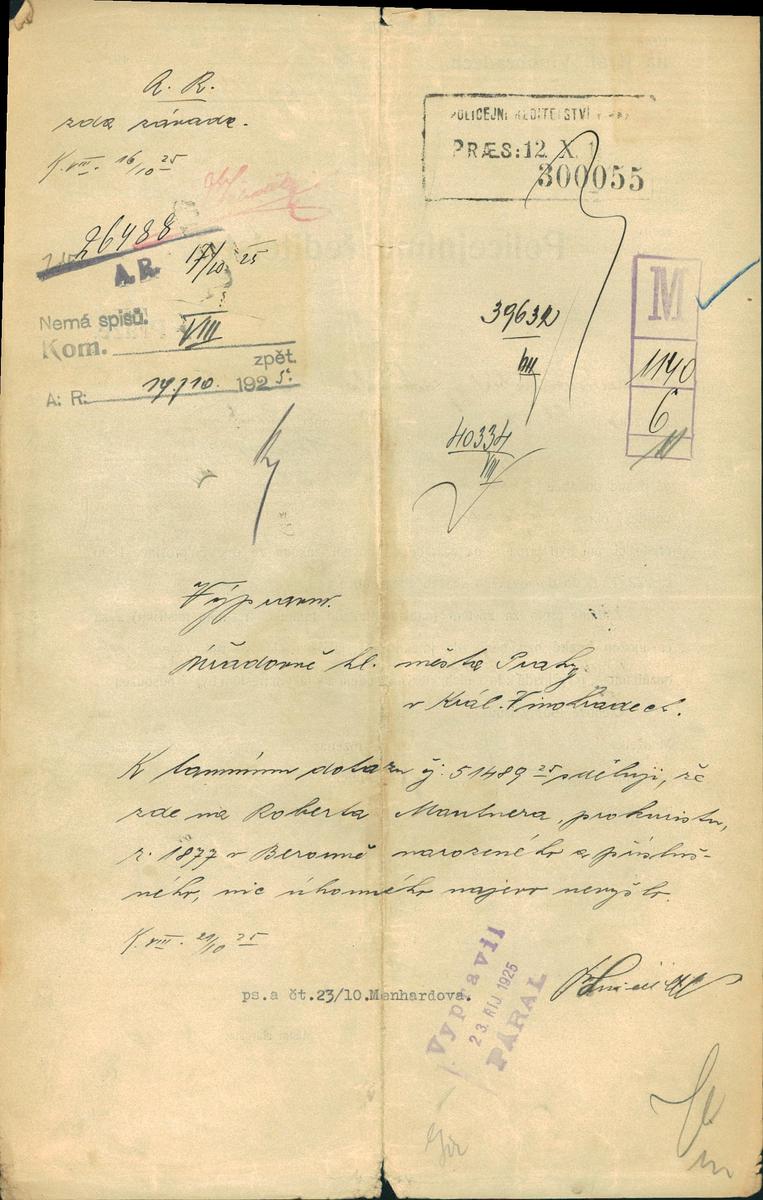 A. R.
zda závada.
K. VIII. 16/10 25
POLICEJNÍ ŘEDITELSTVÍ
PRÆS: 12 X
300055
26488
A.R. 17/10 25
Nemá spisů.
Kom. VIII
zpět.
A: R: 19/10. 1925.
39632
VIII
40334
VIII
M
1140
6
Výpravna.
Úřadovně hl. města Prahy
v Král. Vinohradech.
K tamnímu dotazu čj. 51489 25 sděluji, že
zde na Roberta Mautnera, prokuristu,
r. 1877 v Berouně narozeného a přísluš-
ného, nic úhonného najevo nevyšlo.
K. VIII. 21/10 25
ps.a čt.23/10.Menhardova.
Vypravil
23. ŘÍJ 1925
PÁRAL